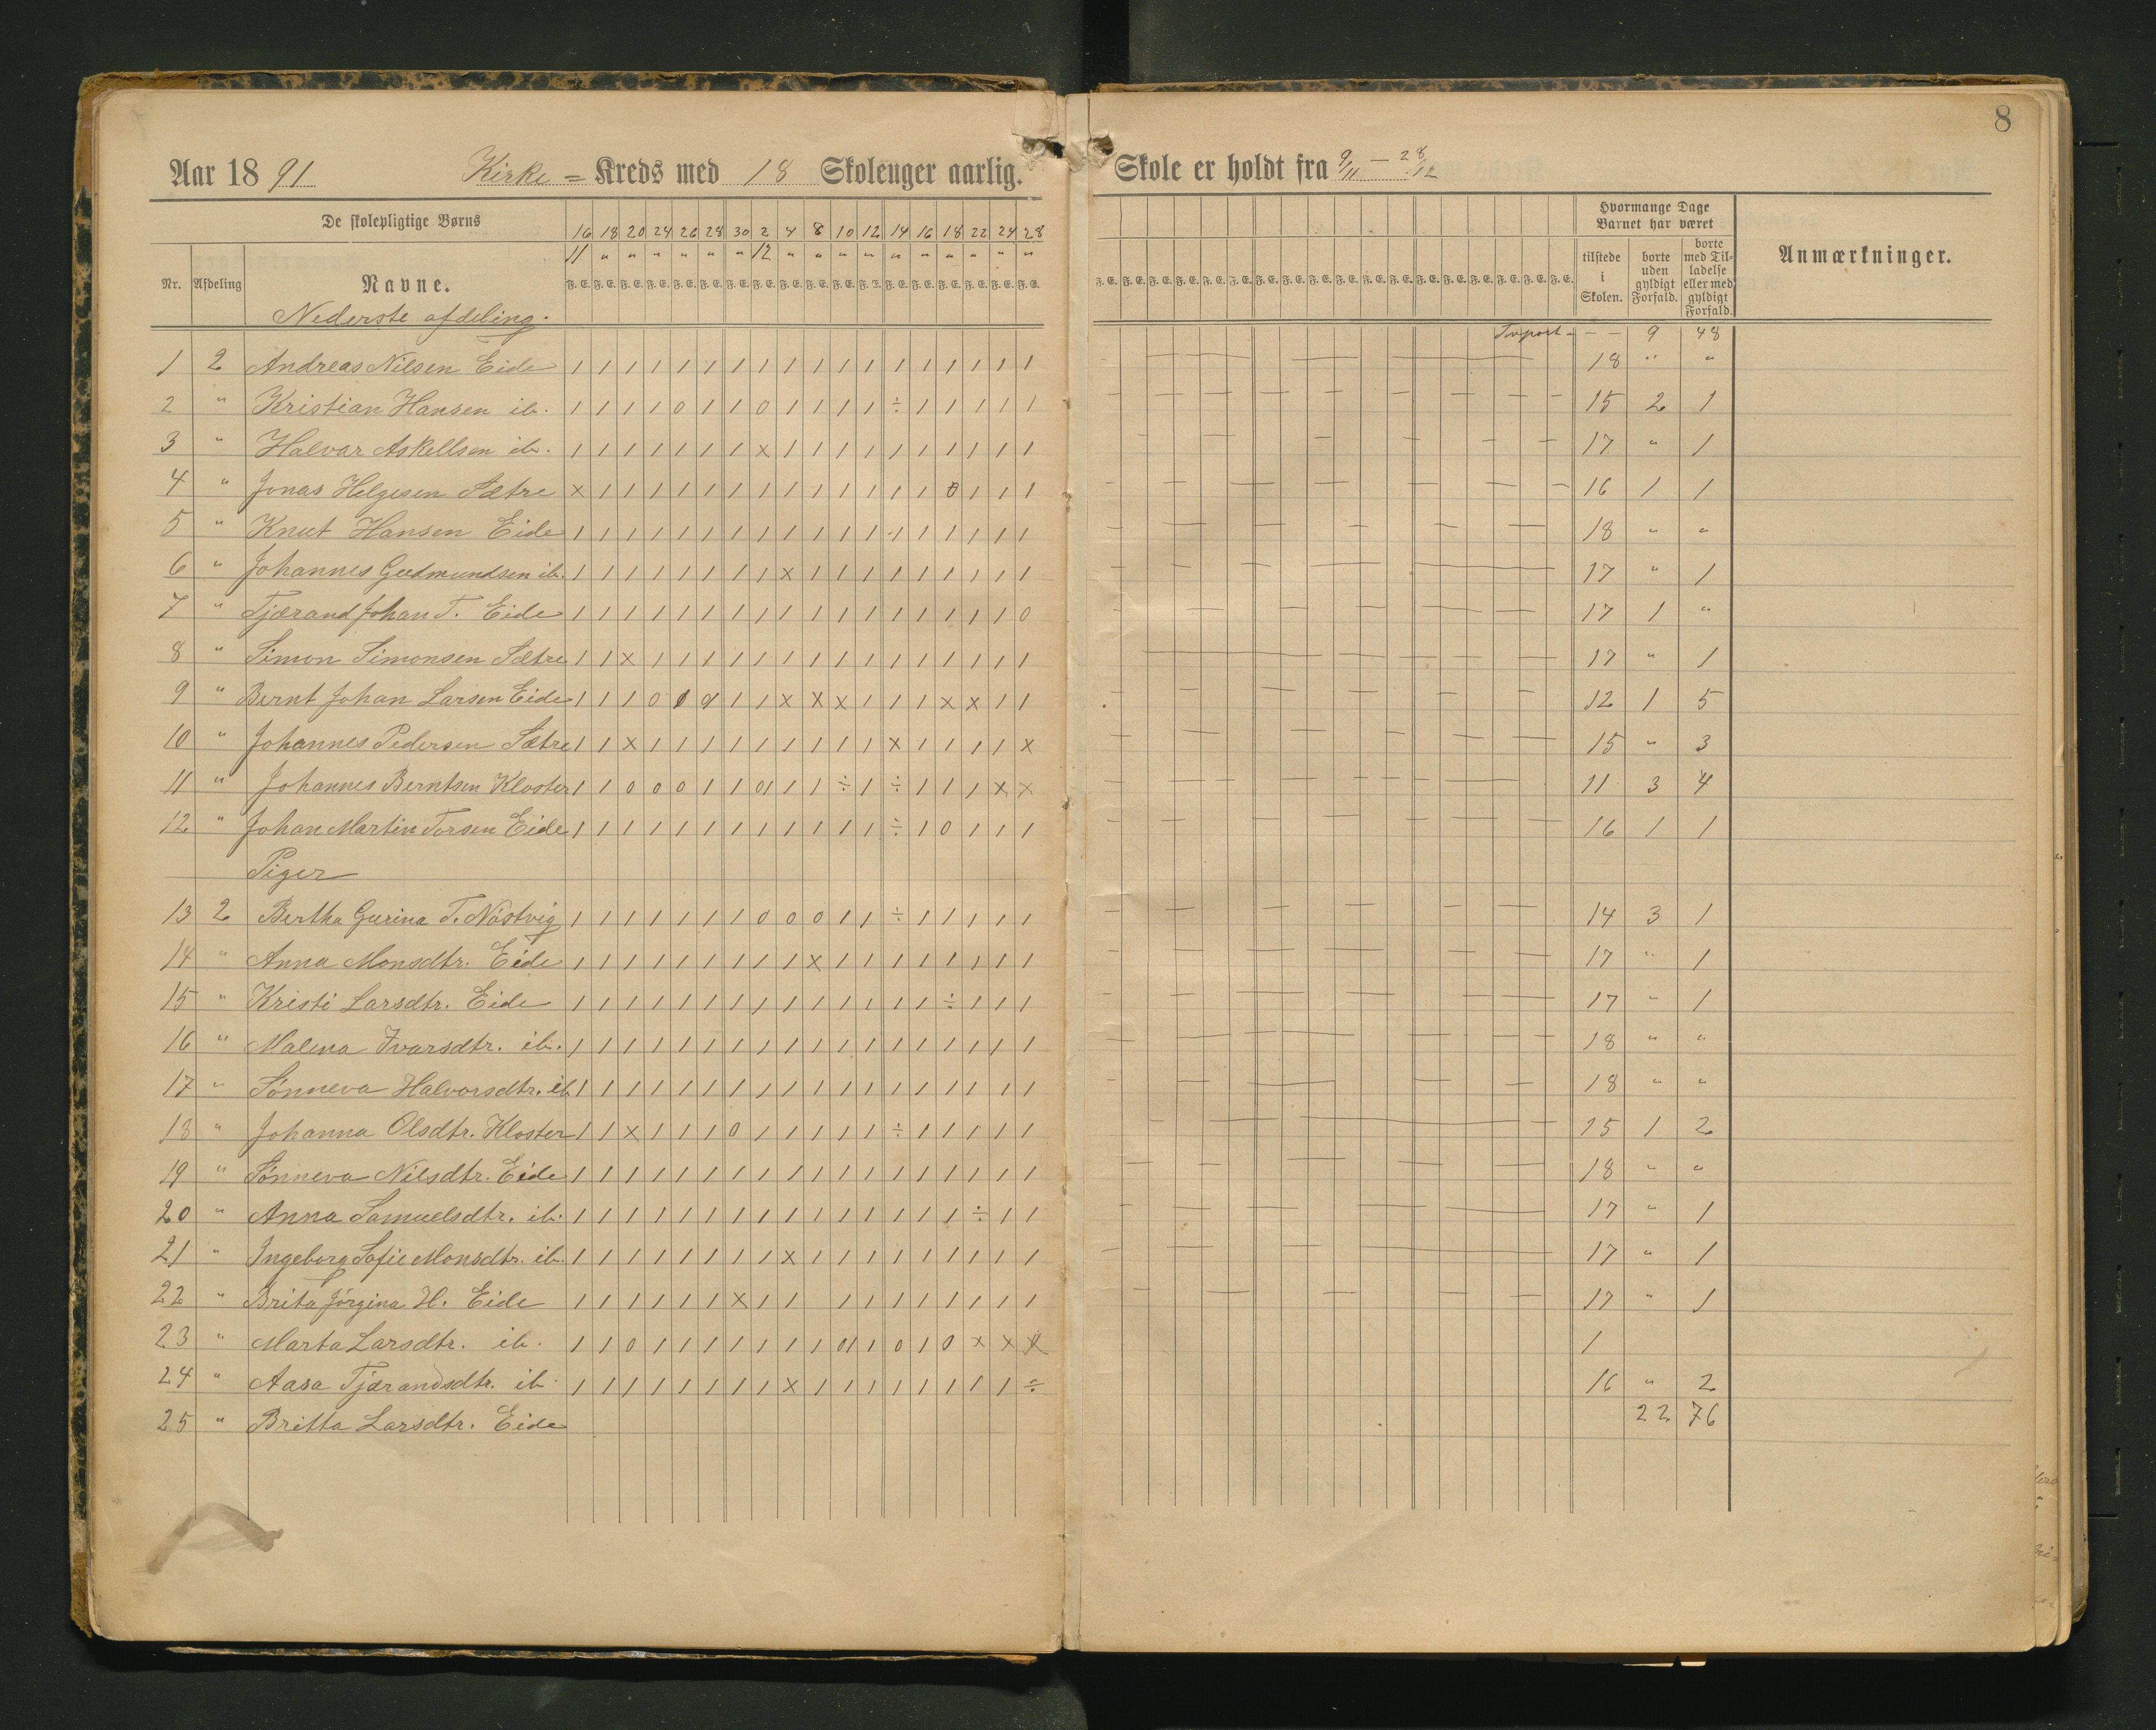 8
Aar 1891 Kirke = Kreds med 18 Skolenger aarlig. Skole er holdt fra 9/11 — 28/12
De skolepligtige Børns 16 18 20 24 26 28 30 2 4 8 10 12 14 16 18 22 24 28 Hvormange Dage Barnet har været
11 " " " " " " 12 " " " " " " " " " "
Nr. Afdeling Navne. F. E. F. E. F. E. F. E. F. E. F. E. F. E. F. E. F. E. F. E. F. E. F. T. F. E. F. E. F. E. F. E. F. E. F. E. tilstede i Skolen. borte uden gyldigt Forfald. borte med Tilladelse eller med gyldigt Forfald. Anmærkninger.
Nederste afdeling.
Trsport — — 9 48
1 2 Andreas Nilsen Eide 1 1 1 1 1 1 1 1 1 1 1 1 1 1 1 1 1 1 18 " "
2 " Kristian Hansen ib. 1 1 1 1 0 1 1 0 1 1 1 1 ÷ 1 1 1 1 1 15 2 1
3 " Halvar Askellsen ib. 1 1 1 1 1 1 1 x 1 1 1 1 1 1 1 1 1 1 17 " 1
4 " Jonas Helgesen Sætre x 1 1 1 1 1 1 1 1 1 1 1 1 1 0 1 1 1 16 1 1
5 " Knut Hansen Eide 1 1 1 1 1 1 1 1 1 1 1 1 1 1 1 1 1 1 18 " "
6 " Johannes Gudmundsen ib. 1 1 1 1 1 1 1 1 x 1 1 1 1 1 1 1 1 1 17 " 1
7 " Tjærand Johan T. Eide 1 1 1 1 1 1 1 1 1 1 1 1 1 1 1 1 1 0 17 1 "
8 " Simon Simonsen Sætre 1 1 x 1 1 1 1 1 1 1 1 1 1 1 1 1 1 1 17 " 1
9 " Bernt Johan Larsen Eide 1 1 1 0 1 1 1 x x x 1 1 1 x x 1 1 12 1 5
10 " Johannes Pedersen Sætre 1 1 x 1 1 1 1 1 1 1 1 1 x 1 1 1 1 x 15 " 3
11 " Johannes Berntsen Kloster 1 1 0 0 0 1 1 01 1 1 ÷ 1 ÷ 1 1 1 x x 11 3 4
12 " Johan Martin Torsen Eide 1 1 1 1 1 1 1 1 1 1 1 1 ÷ 1 0 1 1 1 16 1 1
Piger
13 2 Bertha Gurina T. Nästvig 1 1 1 1 1 1 1 0 0 0 1 1 ÷ 1 1 1 1 1 14 3 1
14 " Anna Monsdtr. Eide 1 1 1 1 1 1 1 1 1 x 1 1 1 1 1 1 1 1 17 " 1
15 " Kristi Larsdtr. Eide 1 1 1 1 1 1 1 1 1 1 1 1 1 1 ÷ 1 1 1 17 " 1
16 " Malena Ivarsdtr. ib. 1 1 1 1 1 1 1 1 1 1 1 1 1 1 1 1 1 1 18 " "
17 " Sönneva Halvorsdtr. ib 1 1 1 1 1 1 1 1 1 1 1 1 1 1 1 1 1 1 18 " "
18 " Johanna Olsdtr. Kloster 1 1 x 1 1 1 0 1 1 1 1 1 ÷ 1 1 1 1 1 15 1 2
19 " Sönneva Nilsdtr. Eide 1 1 1 1 1 1 1 1 1 1 1 1 1 1 1 1 1 1 18 " "
20 " Anna Samuelsdtr. ib. 1 1 1 1 1 1 1 1 1 1 1 1 1 1 1 ÷ 1 1 17 " 1
21 " Ingeborg Sofie Monsdtr. ib. 1 1 1 1 1 1 1 1 x 1 1 1 1 1 1 1 1 1 17 " 1
22 " Brita Jörgina H. Eide 1 1 1 1 1 1 x 1 1 1 1 1 1 1 1 1 1 17 " 1
23 " Marta Larsdtr. ib. 1 1 0 1 1 1 1 1 1 1 01 1 0 1 0 x x x 1
24 " Aasa Tjærandsdtr. ib. 1 1 1 1 1 1 1 1 x 1 1 1 1 1 1 1 1 ÷ 16 " 2
25 " Britta Larsdtr. Eide 22 76